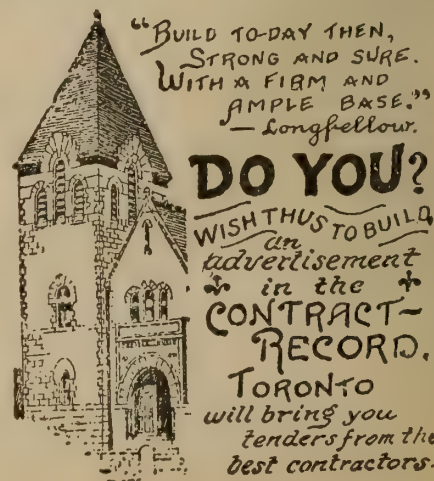 “BUILD TO-DAY THEN,
STRONG AND SURE.
WITH A FIRM AND
AMPLE BASE.”
— Longfellow.
DO YOU?
WISH THUS TO BUILD
an
advertisement
in the
CONTRACT-
RECORD.
TORONTO
will bring you
tenders from the
best contractors.